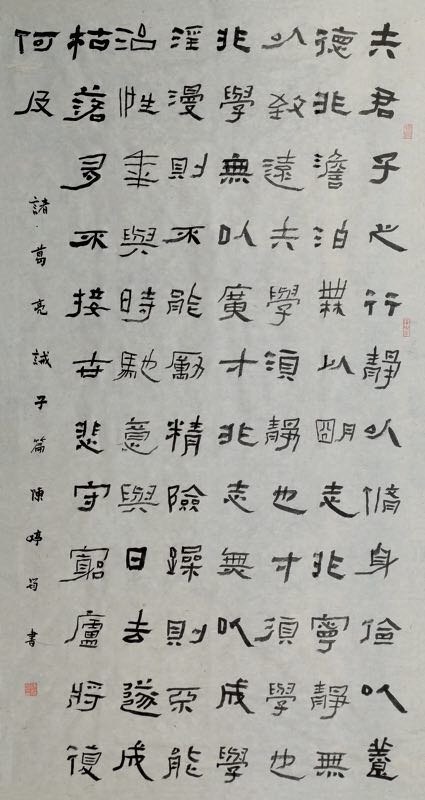 夫君子之行靜以脩身儉以養
德非澹泊無以明志非寧靜無
以致遠夫學須靜也才須學也
非學無以廣才非志無以成學
淫漫則不能勵精險躁則不能
治性年與時馳意與日去遂成
枯落多不接世悲守窮廬將復
何及
諸葛亮誡子篇陳婷書